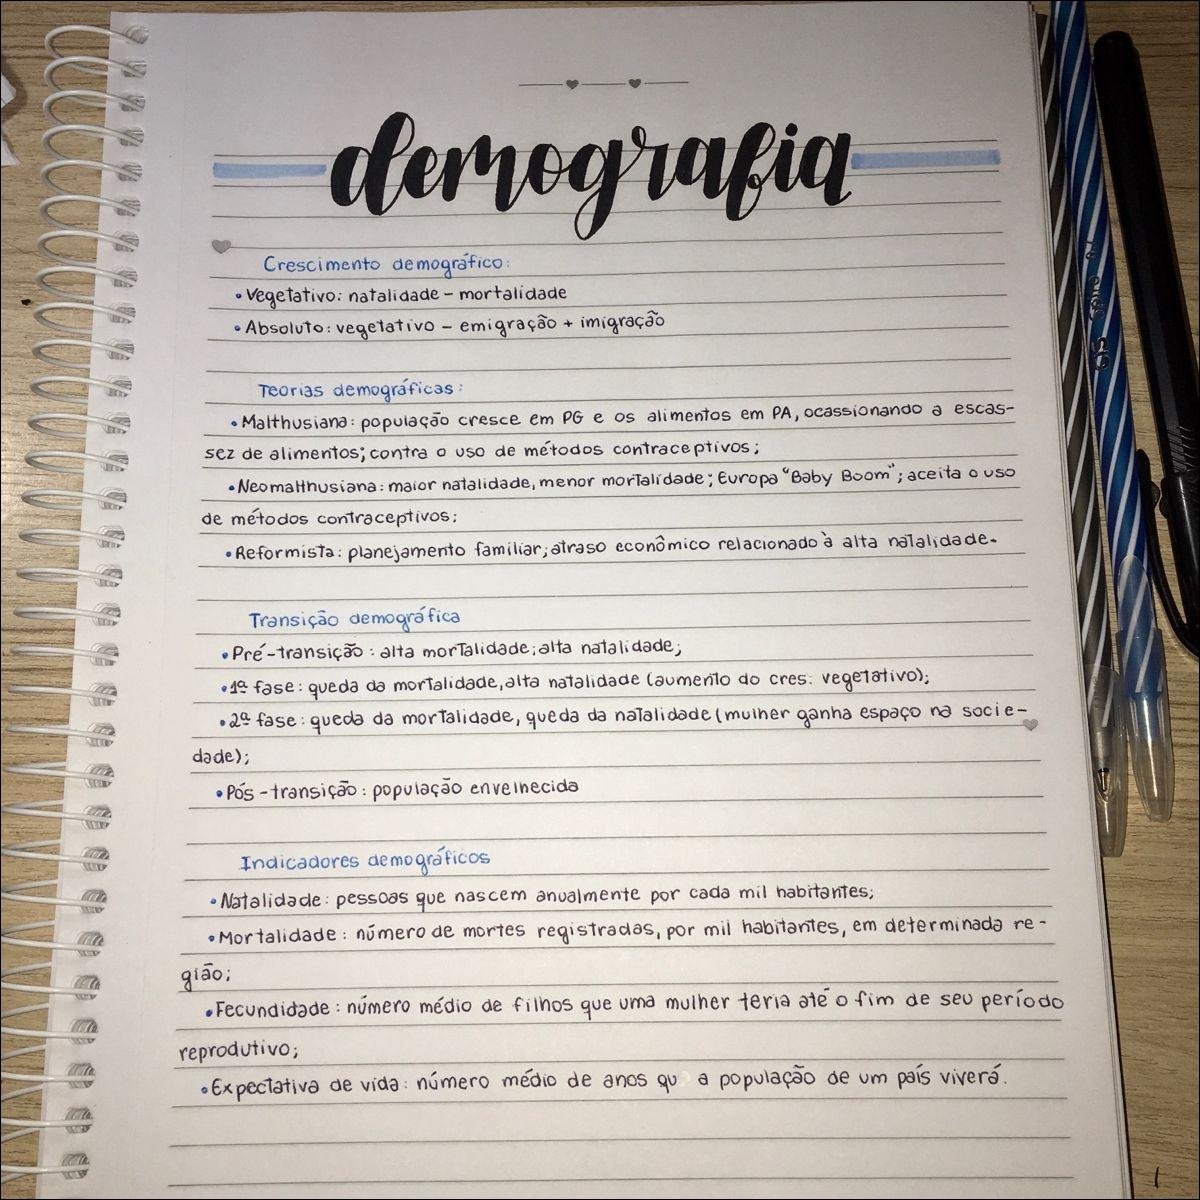 demografia
Crescimento demográfico:
• Vegetativo: natalidade - mortalidade
• Absoluto: vegetativo - emigração + imigração
Teorias demográficas:
• Malthusiana: população cresce em PG e os alimentos em PA, ocassionando a escas-
sez de alimentos; contra o uso de métodos contraceptivos;
• Neomalthusiana: maior natalidade, menor mortalidade; Europa "Baby Boom"; aceita o uso
de métodos contraceptivos;
• Reformista: planejamento familiar; atraso econômico relacionado à alta natalidade.
Transição demográfica
• Pré-transição: alta mortalidade; alta natalidade;
• 1ª fase: queda da mortalidade, alta natalidade (aumento do cres. vegetativo);
• 2ª fase: queda da mortalidade, queda da natalidade (mulher ganha espaço na socie-
dade);
• Pós-transição: população envelhecida
Indicadores demográficos
• Natalidade: pessoas que nascem anualmente por cada mil habitantes;
• Mortalidade: número de mortes registradas, por mil habitantes, em determinada re-
gião;
• Fecundidade: número médio de filhos que uma mulher teria até o fim de seu período
reprodutivo;
• Expectativa de vida: número médio de anos qu a população de um país viverá.